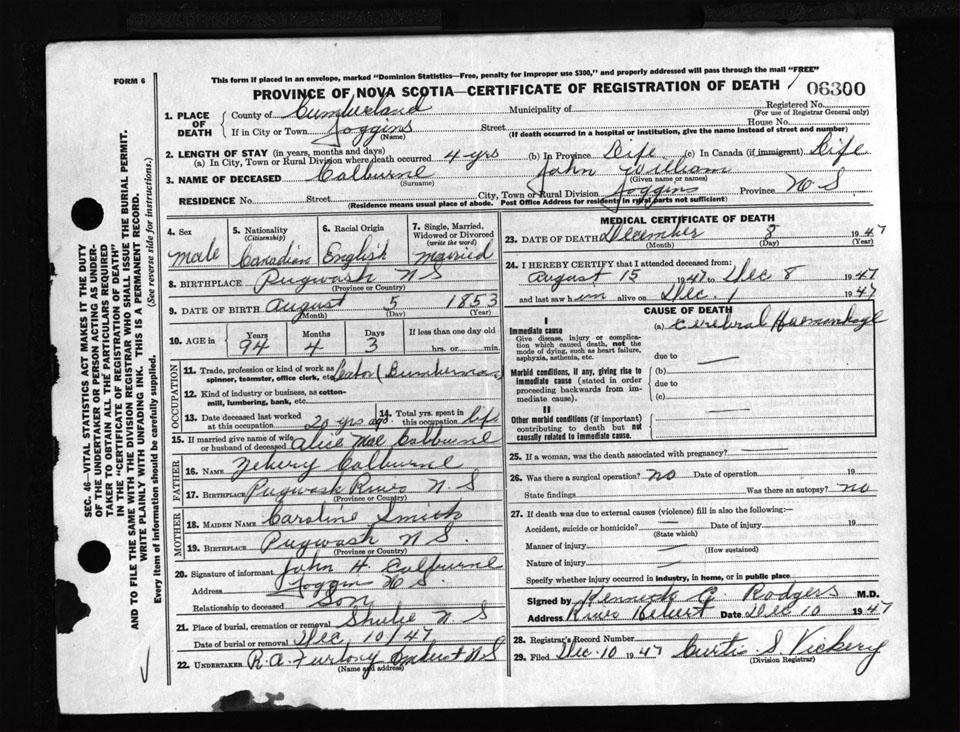 FORM 6
This form if placed in an envelope, marked "Dominion Statistics—Free, penalty for improper use $300," and properly addressed will pass through the mail "FREE"
PROVINCE OF NOVA SCOTIA—CERTIFICATE OF REGISTRATION OF DEATH
06300
1. PLACE OF DEATH
County of Cumberland Municipality of Registered No.
(For use of Registrar General only)
If in City or Town Joggins Street House No.
(Name) (If death occurred in a hospital or institution, give the name instead of street and number)
2. LENGTH OF STAY (in years, months and days)
(a) In City, Town or Rural Division where death occurred 4 yrs (b) In Province Life (c) In Canada (if immigrant) Life
3. NAME OF DECEASED Colburne John William
(Surname) (Given name or names)
RESIDENCE No. Street City, Town or Rural Division Joggins Province N S
(Residence means usual place of abode. Post Office Address for residents in rural parts not sufficient)
4. Sex
Male
5. Nationality (Citizenship)
Canadian
6. Racial Origin
English
7. Single, Married, Widowed or Divorced (write the word)
Married
8. BIRTHPLACE Pugwash N S
(Province or Country)
9. DATE OF BIRTH August 5 1853
(Month) (Day) (Year)
10. AGE in
Years Months Days If less than one day old
94 4 3 hrs. or min.
OCCUPATION
11. Trade, profession or kind of work as spinner, teamster, office clerk, etc. Labor (Lumberman)
12. Kind of industry or business, as cotton-mill, lumbering, bank, etc.
13. Date deceased last worked at this occupation 20 yrs ago
14. Total yrs. spent in this occupation life
15. If married give name of wife or husband of deceased Alice Mae Colburne
FATHER
16. NAME Colburne
17. BIRTHPLACE Pugwash River N. S
(Province or Country)
MOTHER
18. MAIDEN NAME Caroline Smith
19. BIRTHPLACE Pugwash N S.
(Province or Country)
20. Signature of informant John H. Colburne
Address Joggin N S.
Relationship to deceased Son
21. Place of burial, cremation or removal Shulie N S
Date of burial or removal Dec 10/47
22. UNDERTAKER R. A. Furlong Amherst N S
(Name and address)
MEDICAL CERTIFICATE OF DEATH
23. DATE OF DEATH December 8 1947
(Month) (Day) (Year)
24. I HEREBY CERTIFY that I attended deceased from:
August 15 1947 to Dec 8 1947
and last saw him alive on Dec. 1 1947
CAUSE OF DEATH
I
Immediate cause
Give disease, injury or complication which caused death, not the mode of dying, such as heart failure, asphyxia, asthenia, etc.
(a) Cerebral Haemorrhage
due to —
Morbid conditions, if any, giving rise to immediate cause (stated in order proceeding backwards from immediate cause).
(b)
due to
(c)
II
Other morbid conditions (if important) contributing to death but not causally related to immediate cause.
25. If a woman, was the death associated with pregnancy? —
26. Was there a surgical operation? no Date of operation 19
State findings Was there an autopsy? no
27. If death was due to external causes (violence) fill in also the following:—
Accident, suicide or homicide? — Date of injury 19
(State which)
Manner of injury —
(How sustained)
Nature of injury —
Specify whether injury occurred in industry, in home, or in public place
Signed by G. Rodgers M.D.
Address River Hebert Date Dec 10 1947
28. Registrar's Record Number
29. Filed Dec. 10 1947 Curtis S. Vickery
(Division Registrar)
SEC. 46—VITAL STATISTICS ACT MAKES IT THE DUTY
OF THE UNDERTAKER OR PERSON ACTING AS UNDER-
TAKER TO OBTAIN ALL THE PARTICULARS REQUIRED
IN THE "CERTIFICATE OF REGISTRATION OF DEATH"
AND TO FILE THE SAME WITH THE DIVISION REGISTRAR WHO SHALL ISSUE THE BURIAL PERMIT.
WRITE PLAINLY WITH UNFADING INK. THIS IS A PERMANENT RECORD.
Every item of information should be carefully supplied. (See reverse side for instructions.)